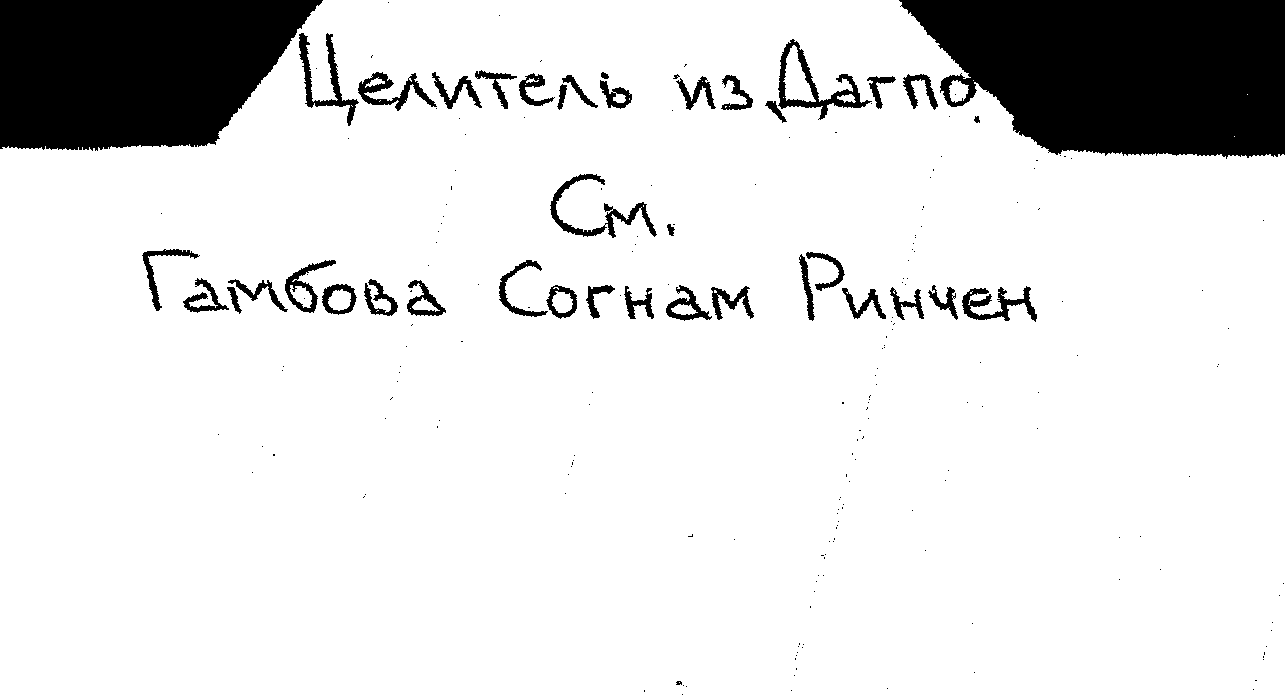 Целитель из Дагпо.
См.
Гамбова Согнам Ринчен